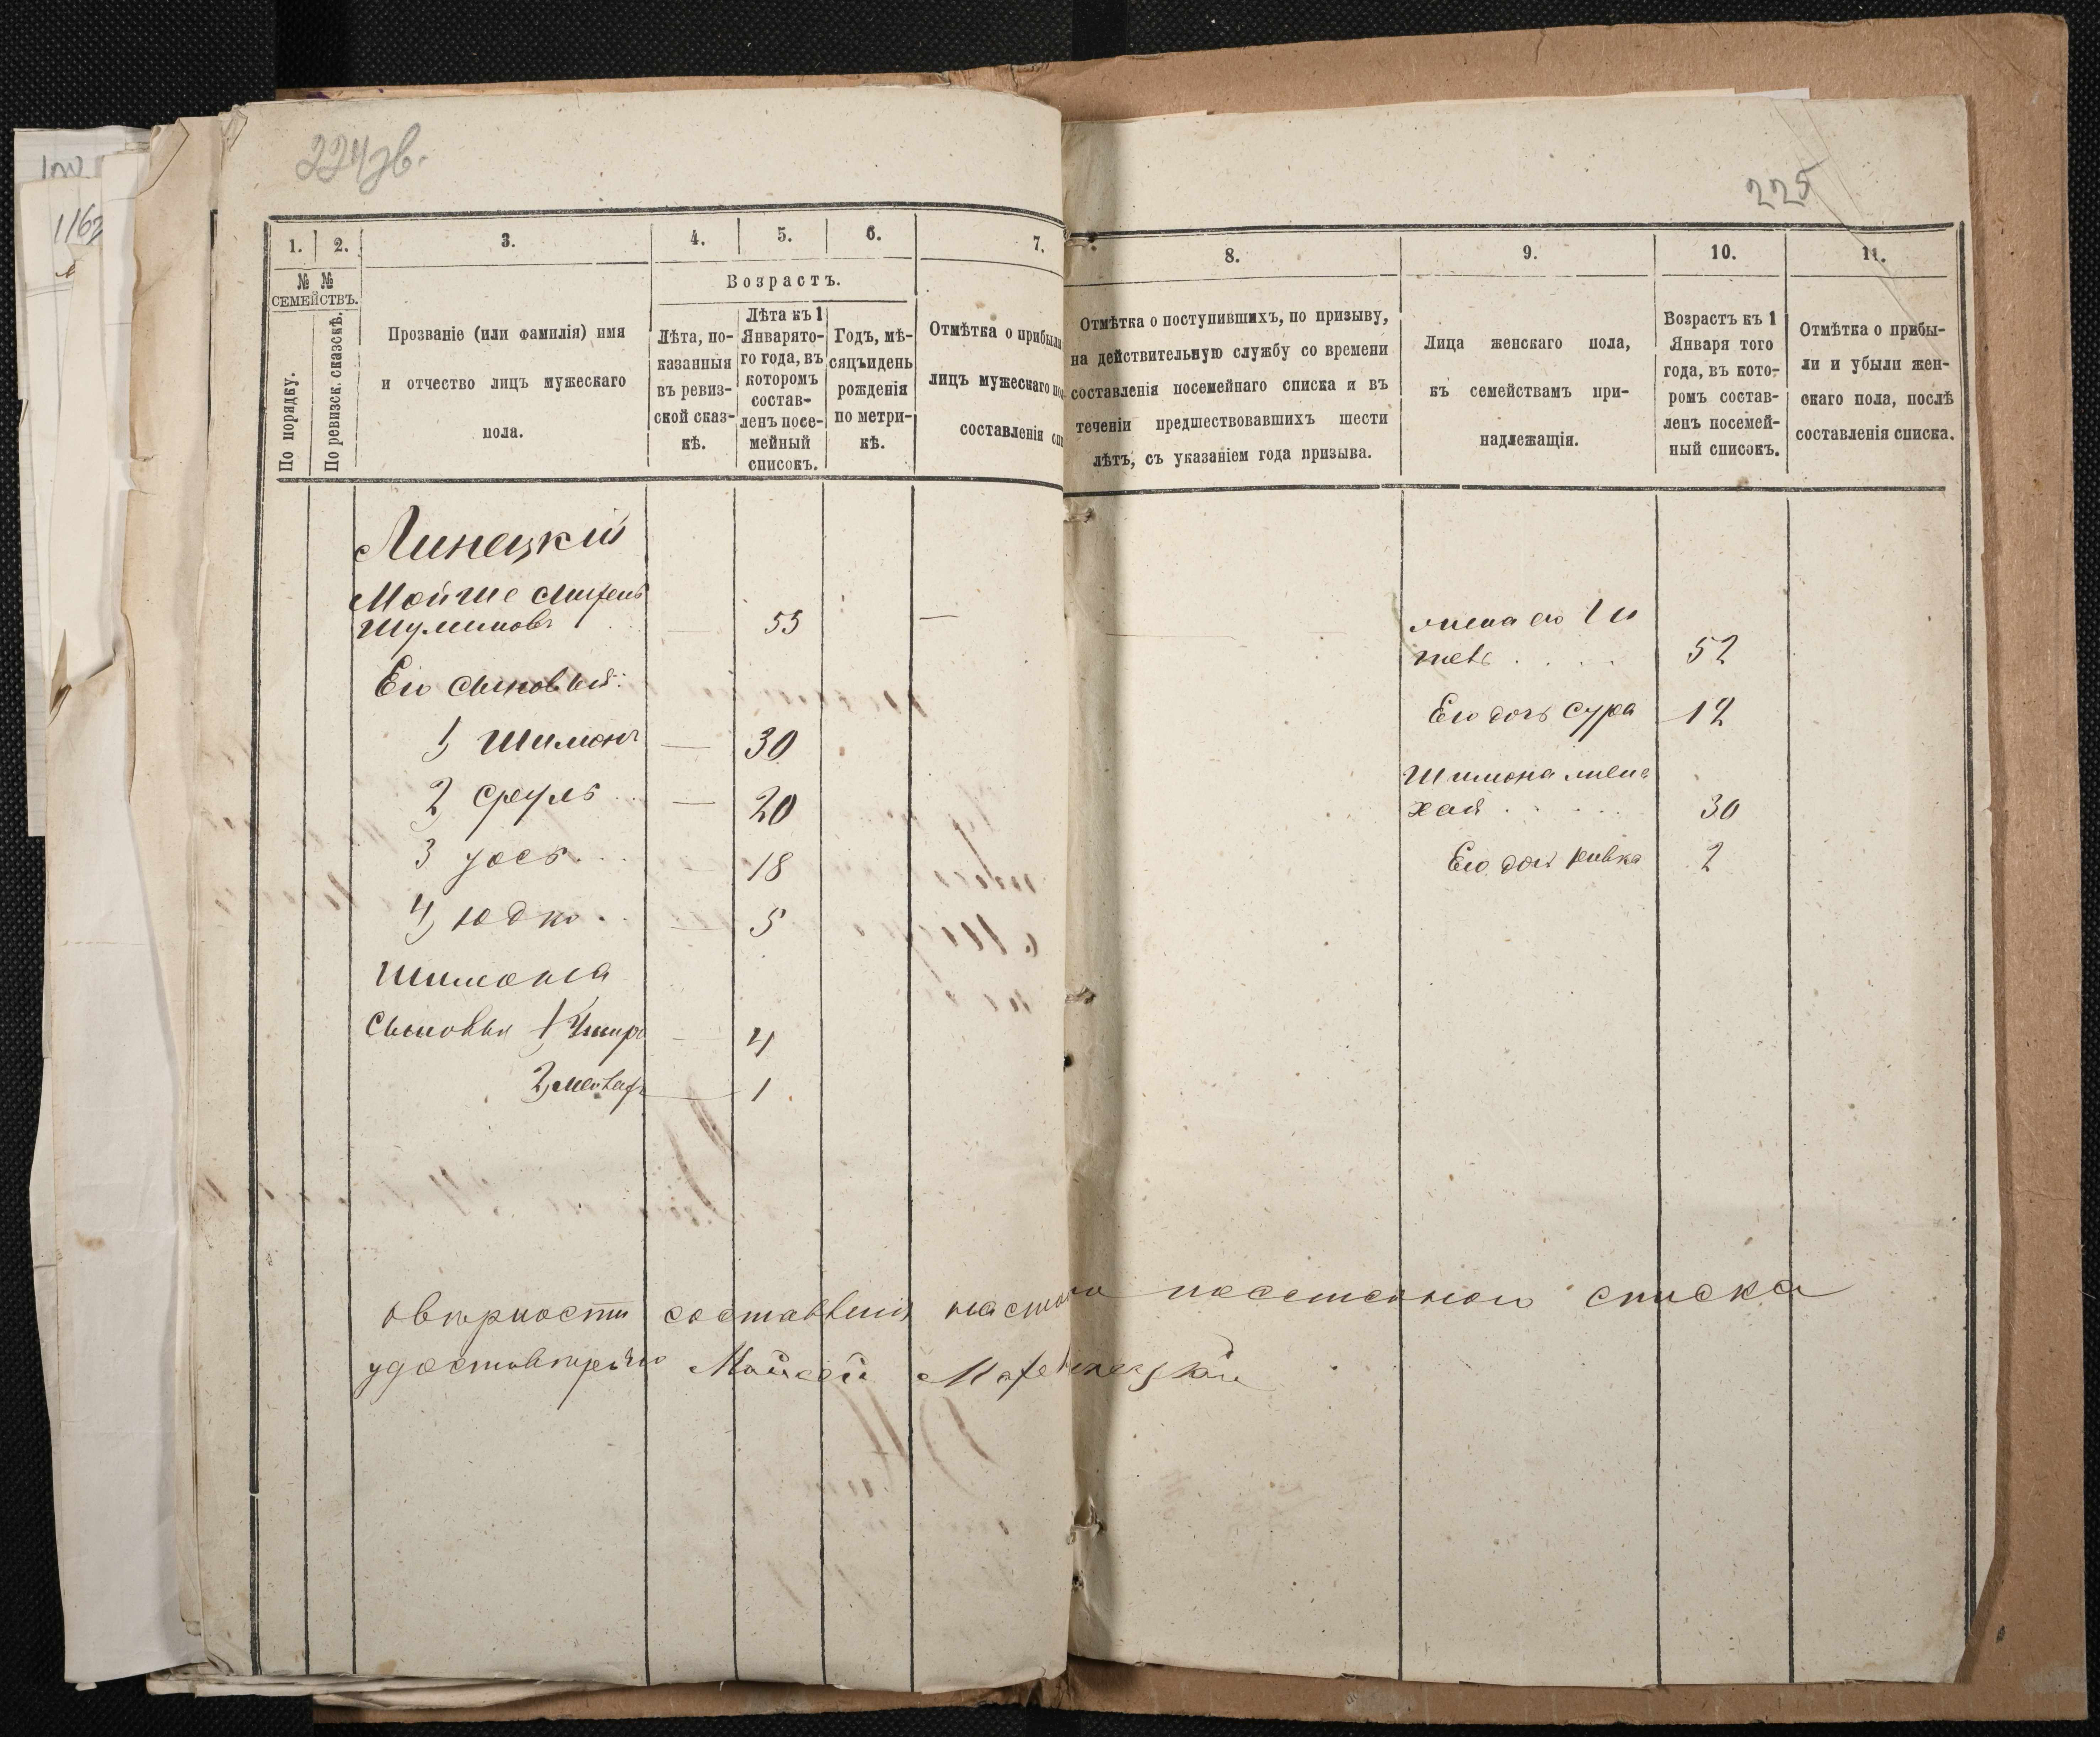 224 об.
225
1163
1. 2. 3. 4. 5. 6. 7.
№ №
СЕМЕЙСТВЪ.
По порядку.
По ревизск. сказскѣ.
Прозваніе (или фамилія) имя
и отчество лицъ мужескаго
пола.
Возрастъ.
Лѣта, по-
казанныя
въ ревиз-
ской сказ-
кѣ.
Лѣта къ 1
Января то-
го года, въ
которомъ
состав-
ленъ посе-
мейный
списокъ.
Годъ, мѣ-
сяцъ и день
рожденія
по метри-
кѣ.
Отмѣтка о прибыли
лицъ мужескаго
составленія
8. 9. 10. 11.
Отмѣтка о поступившихъ, по призыву,
на дѣйствительную службу со времени
составленія посемейнаго списка и въ
теченіи предшествовавшихъ шести
лѣтъ, съ указаніемъ года призыва.
Лица женскаго пола,
къ семействамъ при-
надлежащія.
Возрастъ къ 1
Января того
года, въ кото-
ромъ состав-
ленъ посемей-
ный списокъ.
Отмѣтка о прибы-
ли и убыли жен-
скаго пола, послѣ
составленія списка.
Линецкій
Мойше
Шулимовъ — 55 —
Его сыновья:
1, Шимонъ — 30
2, Сруль — 20
3 Іось — 18
4, Юдко — 5
Шимона
Сыновья 1, — 4
2, — 1
жена его
52
Его дочь Сура 12
Шимона жена
Хая 30
Его дочь Ривка 2
О вѣрности составленія посемейнаго списка
удостовѣряю Мойсей